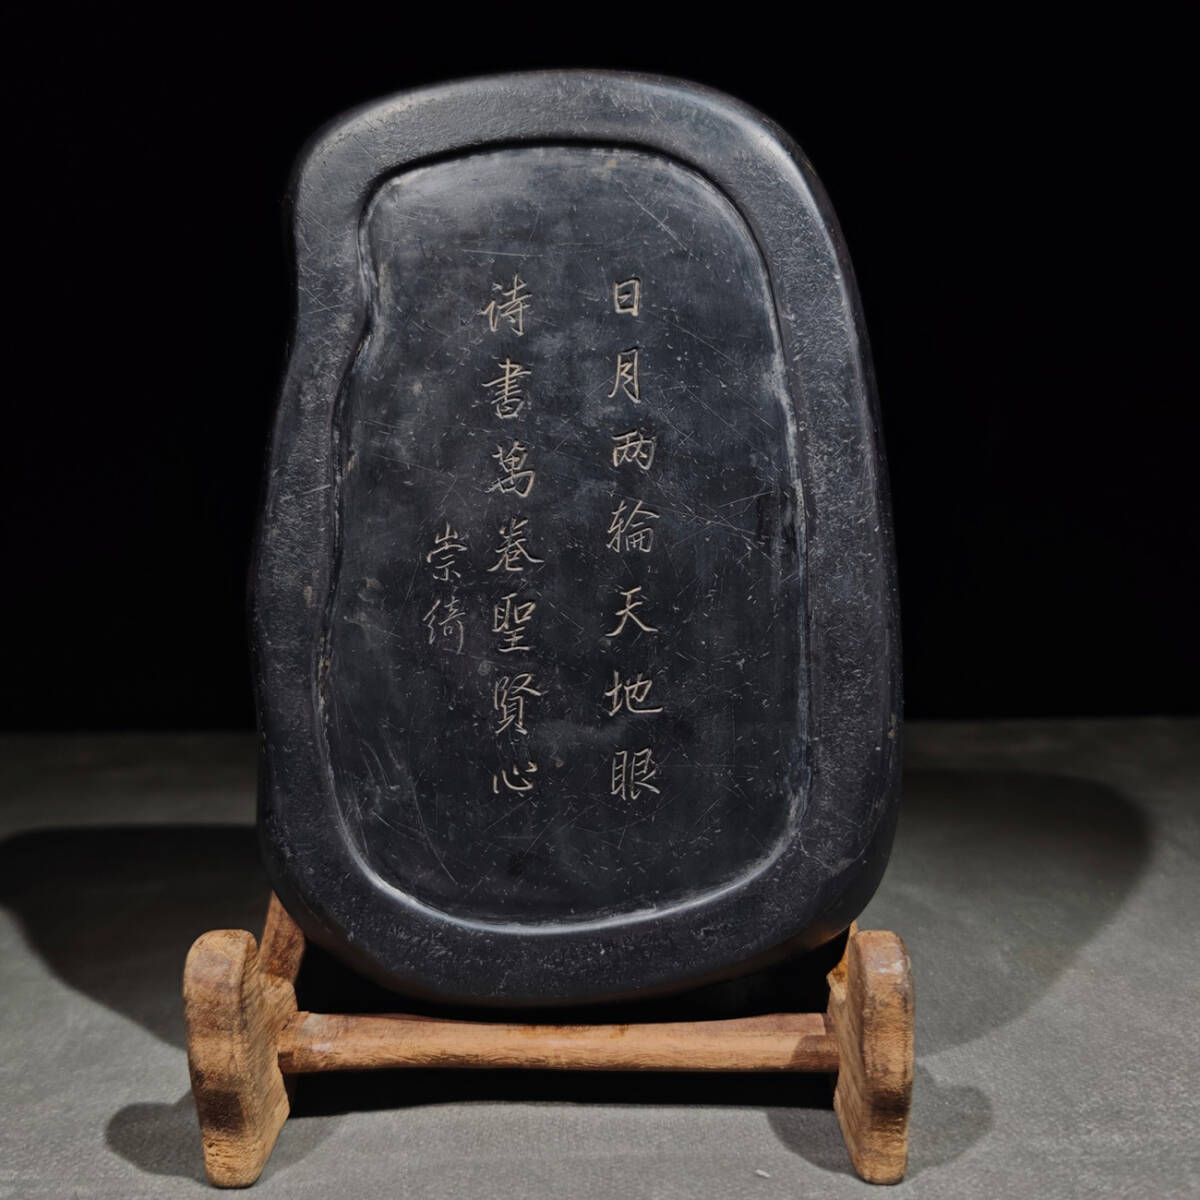 日月两轮天地眼
诗書萬卷聖賢心
崇绮